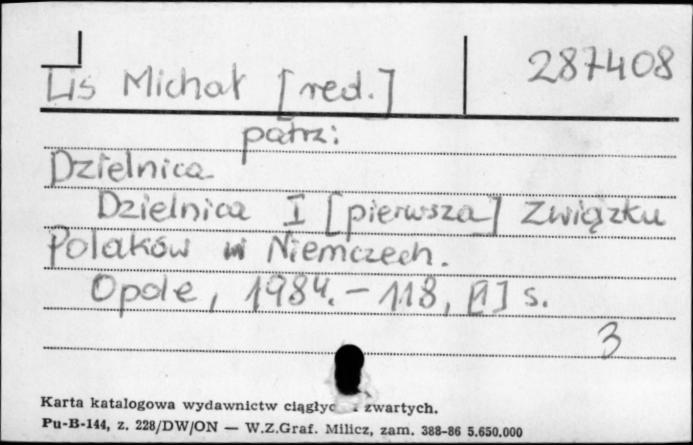 Lis Michał [red.] 287408
patrz:
Dzielnica
Dzielnica I [pierwsza] Związku
Polaków w Niemczech.
Opole, 1984. - 118, [1] s.
3
Karta katalogowa wydawnictw zwartych.
Pu-B-144, z. 228/DW/ON — W.Z.Graf. Milicz, zam. 388-86 5.650.000